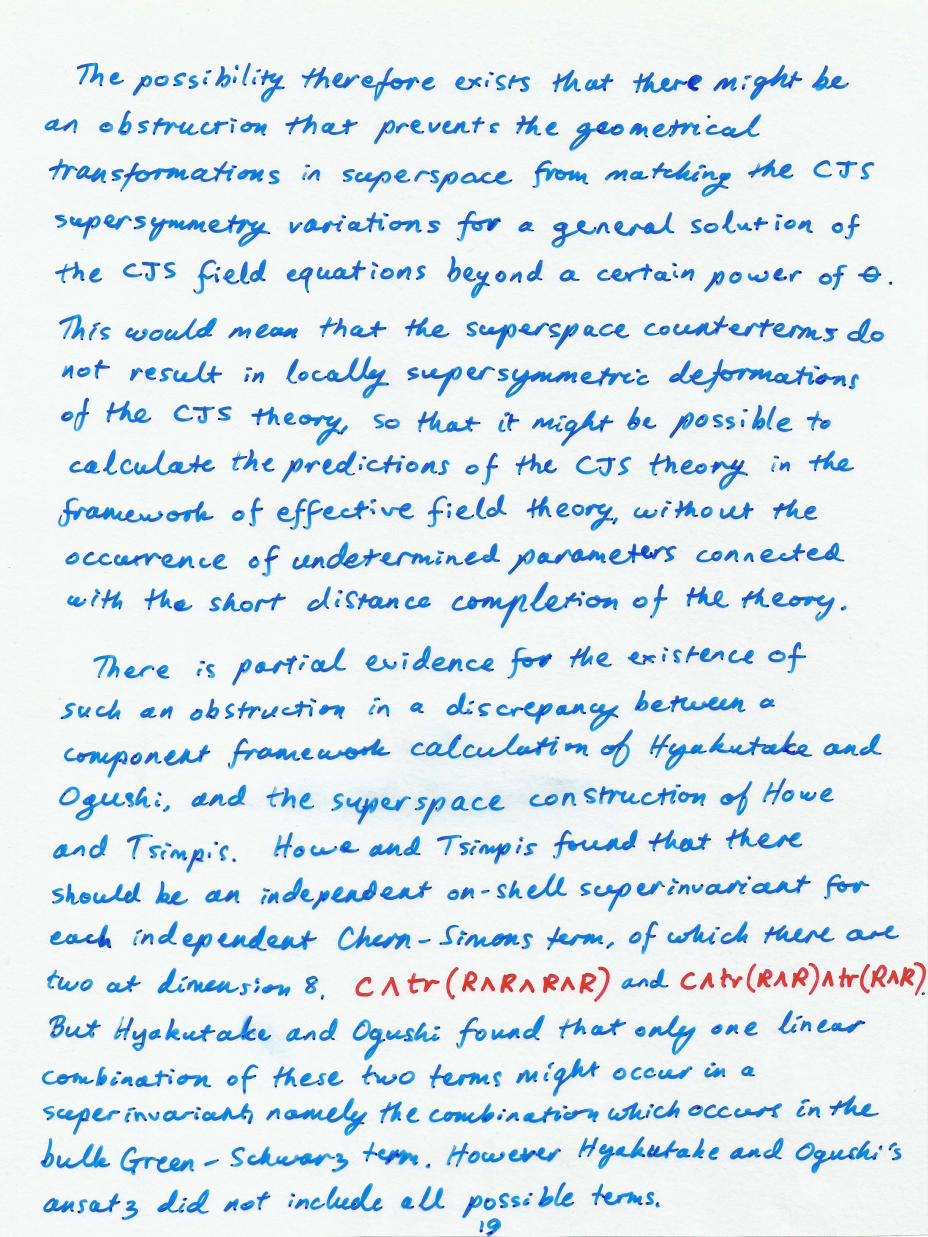 The possibility therefore exists that there might be
an obstruction that prevents the geometrical
transformations in superspace from matching the CJS
supersymmetry variations for a general solution of
the CJS field equations beyond a certain power of θ.
This would mean that the superspace counterterms do
not result in locally supersymmetric deformations
of the CJS theory, so that it might be possible to
calculate the predictions of the CJS theory in the
framework of effective field theory, without the
occurrence of undetermined parameters connected
with the short distance completion of the theory.
There is partial evidence for the existence of
such an obstruction in a discrepancy between a
component framework calculation of Hyakutake and
Ogushi, and the superspace construction of Howe
and Tsimpis. Howe and Tsimpis found that there
should be an independent on-shell superinvariant for
each independent Chern-Simons term, of which there are
two at dimension 8, C∧tr(R∧R∧R∧R) and C∧tr(R∧R)∧tr(R∧R).
But Hyakutake and Ogushi found that only one linear
combination of these two terms might occur in a
superinvariant, namely the combination which occurs in the
bulk Green-Schwarz term. However Hyakutake and Ogushi's
ansatz did not include all possible terms.
19